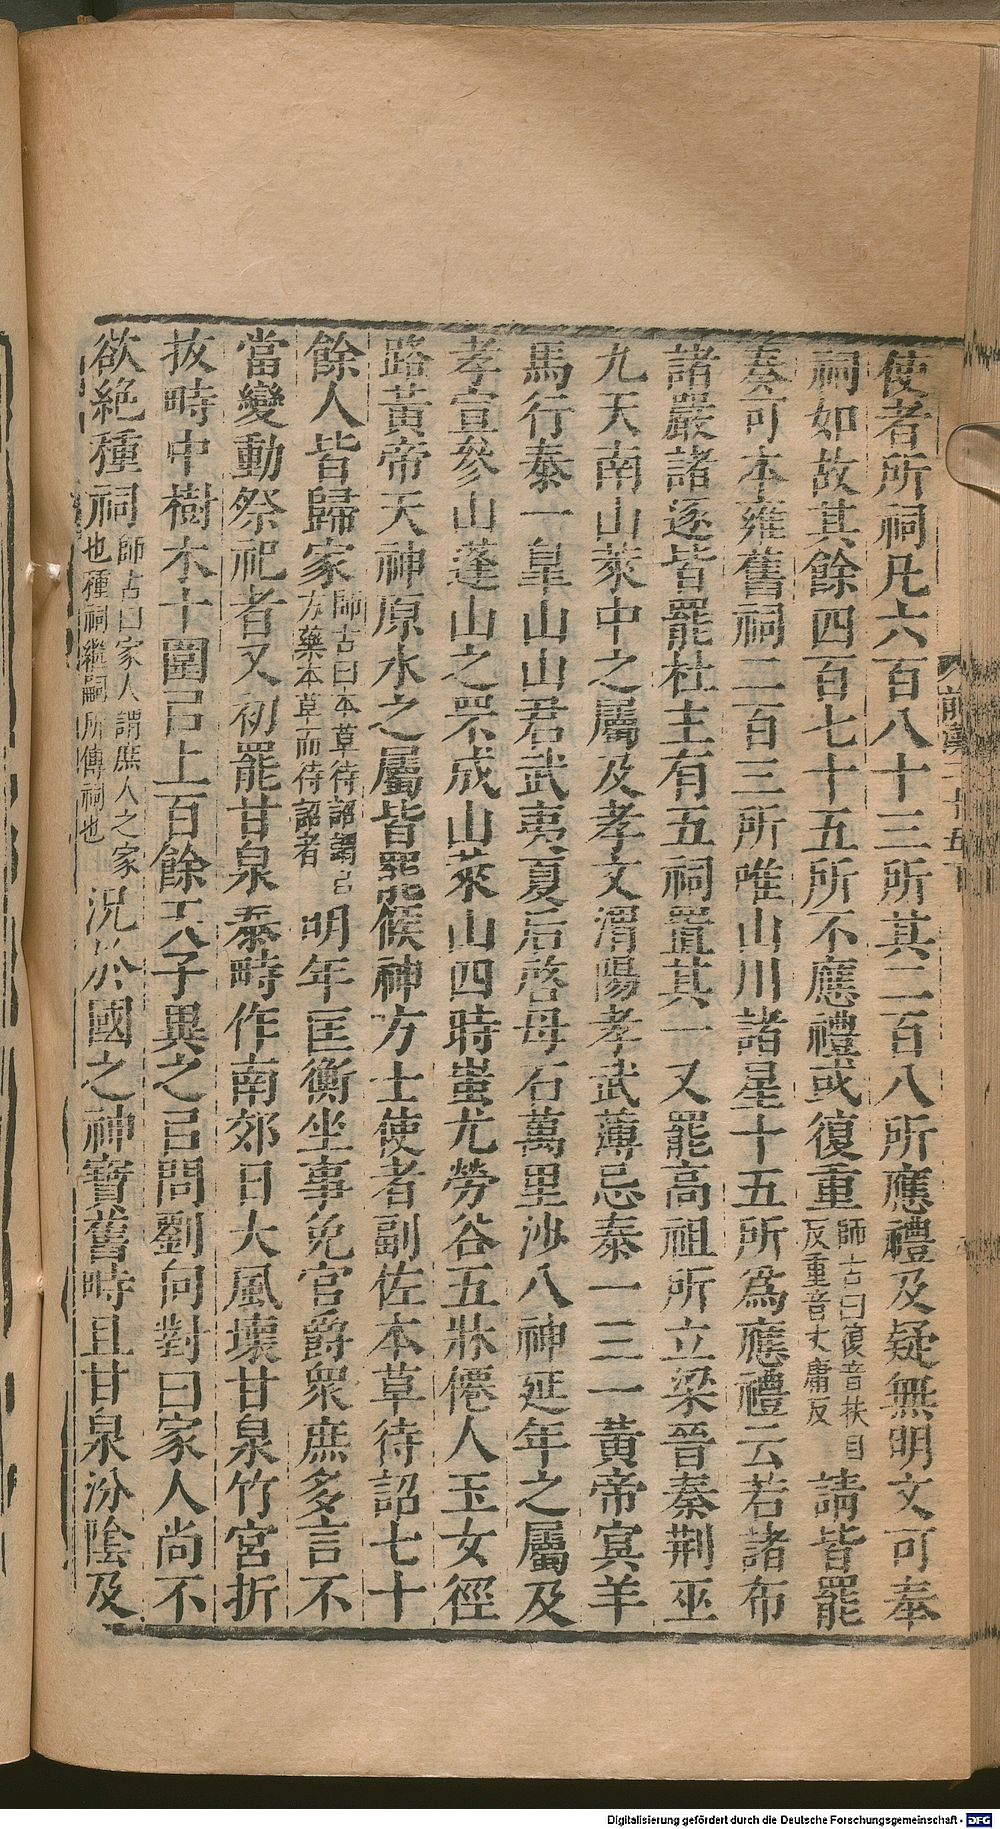 使者所祠凡六百八十三所其二百八所應禮及疑無明文可奉
祠如故其餘四百七十五所不應禮或復重師古曰復音扶目反重音丈庸反請皆罷
奏可本雍舊祠二百三所唯山川諸星十五所為應禮云若諸布
諸嚴諸逐皆罷杜主有五祠置其一又罷高祖所立梁晉秦荆巫
九天南山萊中之屬及孝文渭陽孝武薄忌泰一三一黃帝冥羊
馬行泰一皐山山君武夷夏后啓母石萬里沙八神延年之屬及
孝宣參山蓬山之罘成山萊山四時蚩尤勞谷五牀僊人玉女徑
路黃帝天神原水之屬皆罷候神方士使者副佐本草待詔七十
餘人皆歸家師古曰本草待詔謂㠯方藥本草而待詔者明年匡衡坐事免官爵衆庶多言不
當變動祭祀者又初罷甘泉泰畤作南郊日大風壞甘泉竹宮折
拔畤中樹木十圍㠯上百餘天子異之㠯問劉向對曰家人尚不
欲絶種祠師古曰家人謂庶人之家也種祠繼嗣所傳祠也況於國之神寶舊畤且甘泉汾陰及
Digitalisierung gefördert durch die Deutsche Forschungsgemeinschaft - DFG